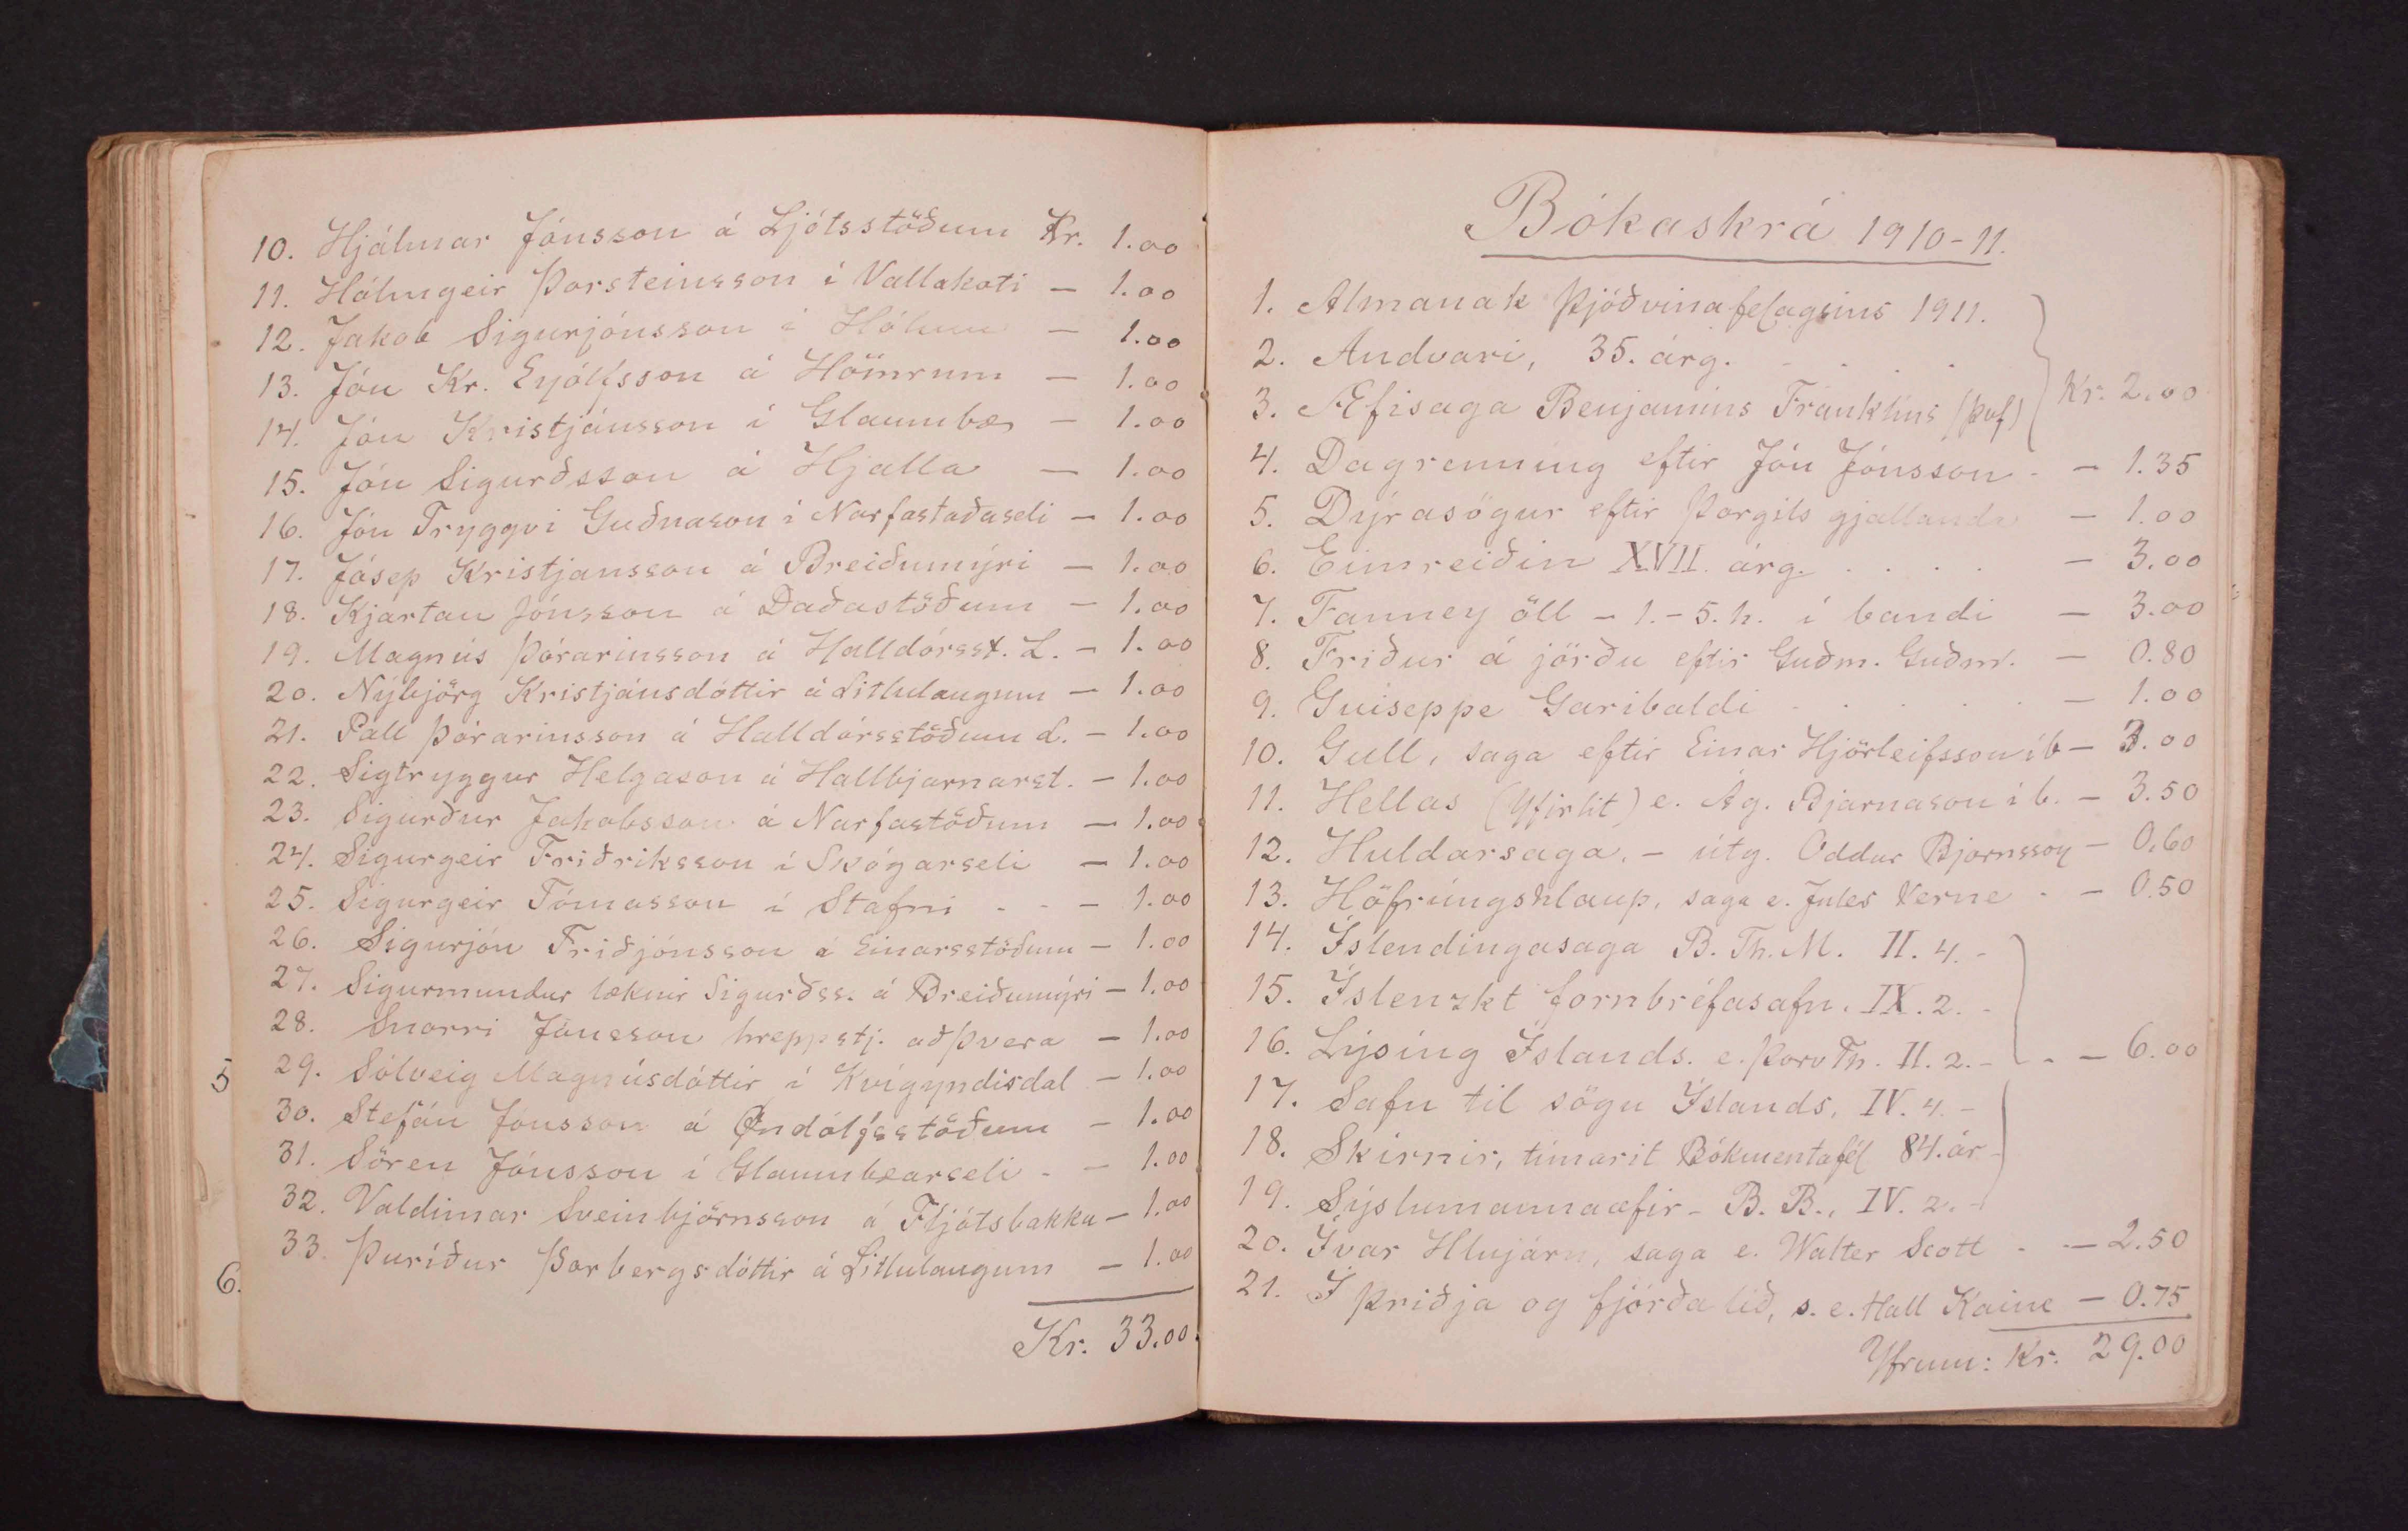 10. Hjálmar Jónsson á Ljótsstöðum Kr. 1.00
11. Hólmgeir Þorsteinsson í Vallakoti — 1.00
12. Jakob Sigurjónsson í Hólum — 1.00
13. Jón Kr. Eyjólfsson á Hömrum — 1.00
14. Jón Kristjánsson í Glaumbæ — 1.00
15. Jón Sigurðsson á Hjalla — 1.00
16. Jón Tryggvi Guðnason í Narfastaðaseli — 1.00
17. Jósep Kristjansson á Breiðumýri — 1.00
18. Kjartan Jónsson á Daðastöðum — 1.00
19. Magnús Þórarinsson á Halldórsst. L. — 1.00
20. Nýbjörg Kristjánsdóttir á Litlulaugum — 1.00
21. Páll Þórarinsson á Halldórsstöðum L. — 1.00
22. Sigtryggur Helgason á Hallbjarnarst. — 1.00
23. Sigurður Jakobsson á Narfastöðum — 1.00
24. Sigurgeir Friðriksson í Skógarseli — 1.00
25. Sigurgeir Tómasson í Stafni - - — 1.00
26. Sigurjón Friðjónsson á Einarsstöðum — 1.00
27. Sigurmundur læknir Sigurðss. á Breiðumýri — 1.00
28. Snorri Jónsson hreppstj. að Þverá — 1.00
5 29. Sólveig Magnúsdóttir í Kvígyndisdal — 1.00
30. Stefán Jónsson á Öndólfsstöðum — 1.00
31. Sören Jónsson í Glaumbæarseli - — 1.00
32. Valdimar Sveinbjörnsson á Fljótsbakka — 1.00
33. Þuríður Þorbergsdóttir á Litlulaugum — 1.00
6.
Kr. 33.00.
Bókaskrá 1910-11.
1. Almanak Þjóðvinafelagsins 1911.
2. Andvari, 35. árg. - . . .
3. Æfisaga Benjamins Franklins (Þvf) Kr. 2.00
4. Dagrenning eftir Jón Jónsson - — 1.35
5. Dýrasögur eftir Þorgils gjallanda — 1.00
6. Eimreiðin XVII. árg. . . . . — 3.00
7. Fanney öll - 1.-5. h. í bandi — 3.00
8. Friður á jörðu eftir Guðm. Guðm. — 0.80
9. Guiseppe Garibaldi . . . . . — 1.00
10. Gull, saga eftir Einar Hjörleifsson í b — 3.00
11. Hellas (Yfirlit) e. Ág. Bjarnason í b. — 3.50
12. Huldarsaga. - útg. Oddur Bjornsson — 0.60
13. Höfrúngshlaup, saga e. Jules Verne - — 0.50
14. Íslendingasaga B. Th. M. II. 4. -
15. Íslenzkt fornbréfasafn. IX. 2. -
16. Lýsing Íslands. e. Þorv Th. II. 2. - - — 6.00
17. Safn til sögu Íslands, IV. 4. -
18. Skírnir, tímarit Bókmentafél 84. ár -
19. Sýslumannaæfir - B. B., IV. 2. -
20. Ívar Hlujárn, saga e. Walter Scott - — 2.50
21. Í þriðja og fjórða lið, s. e. Hall Kaine — 0.75
Yfrum: Kr. 29.00